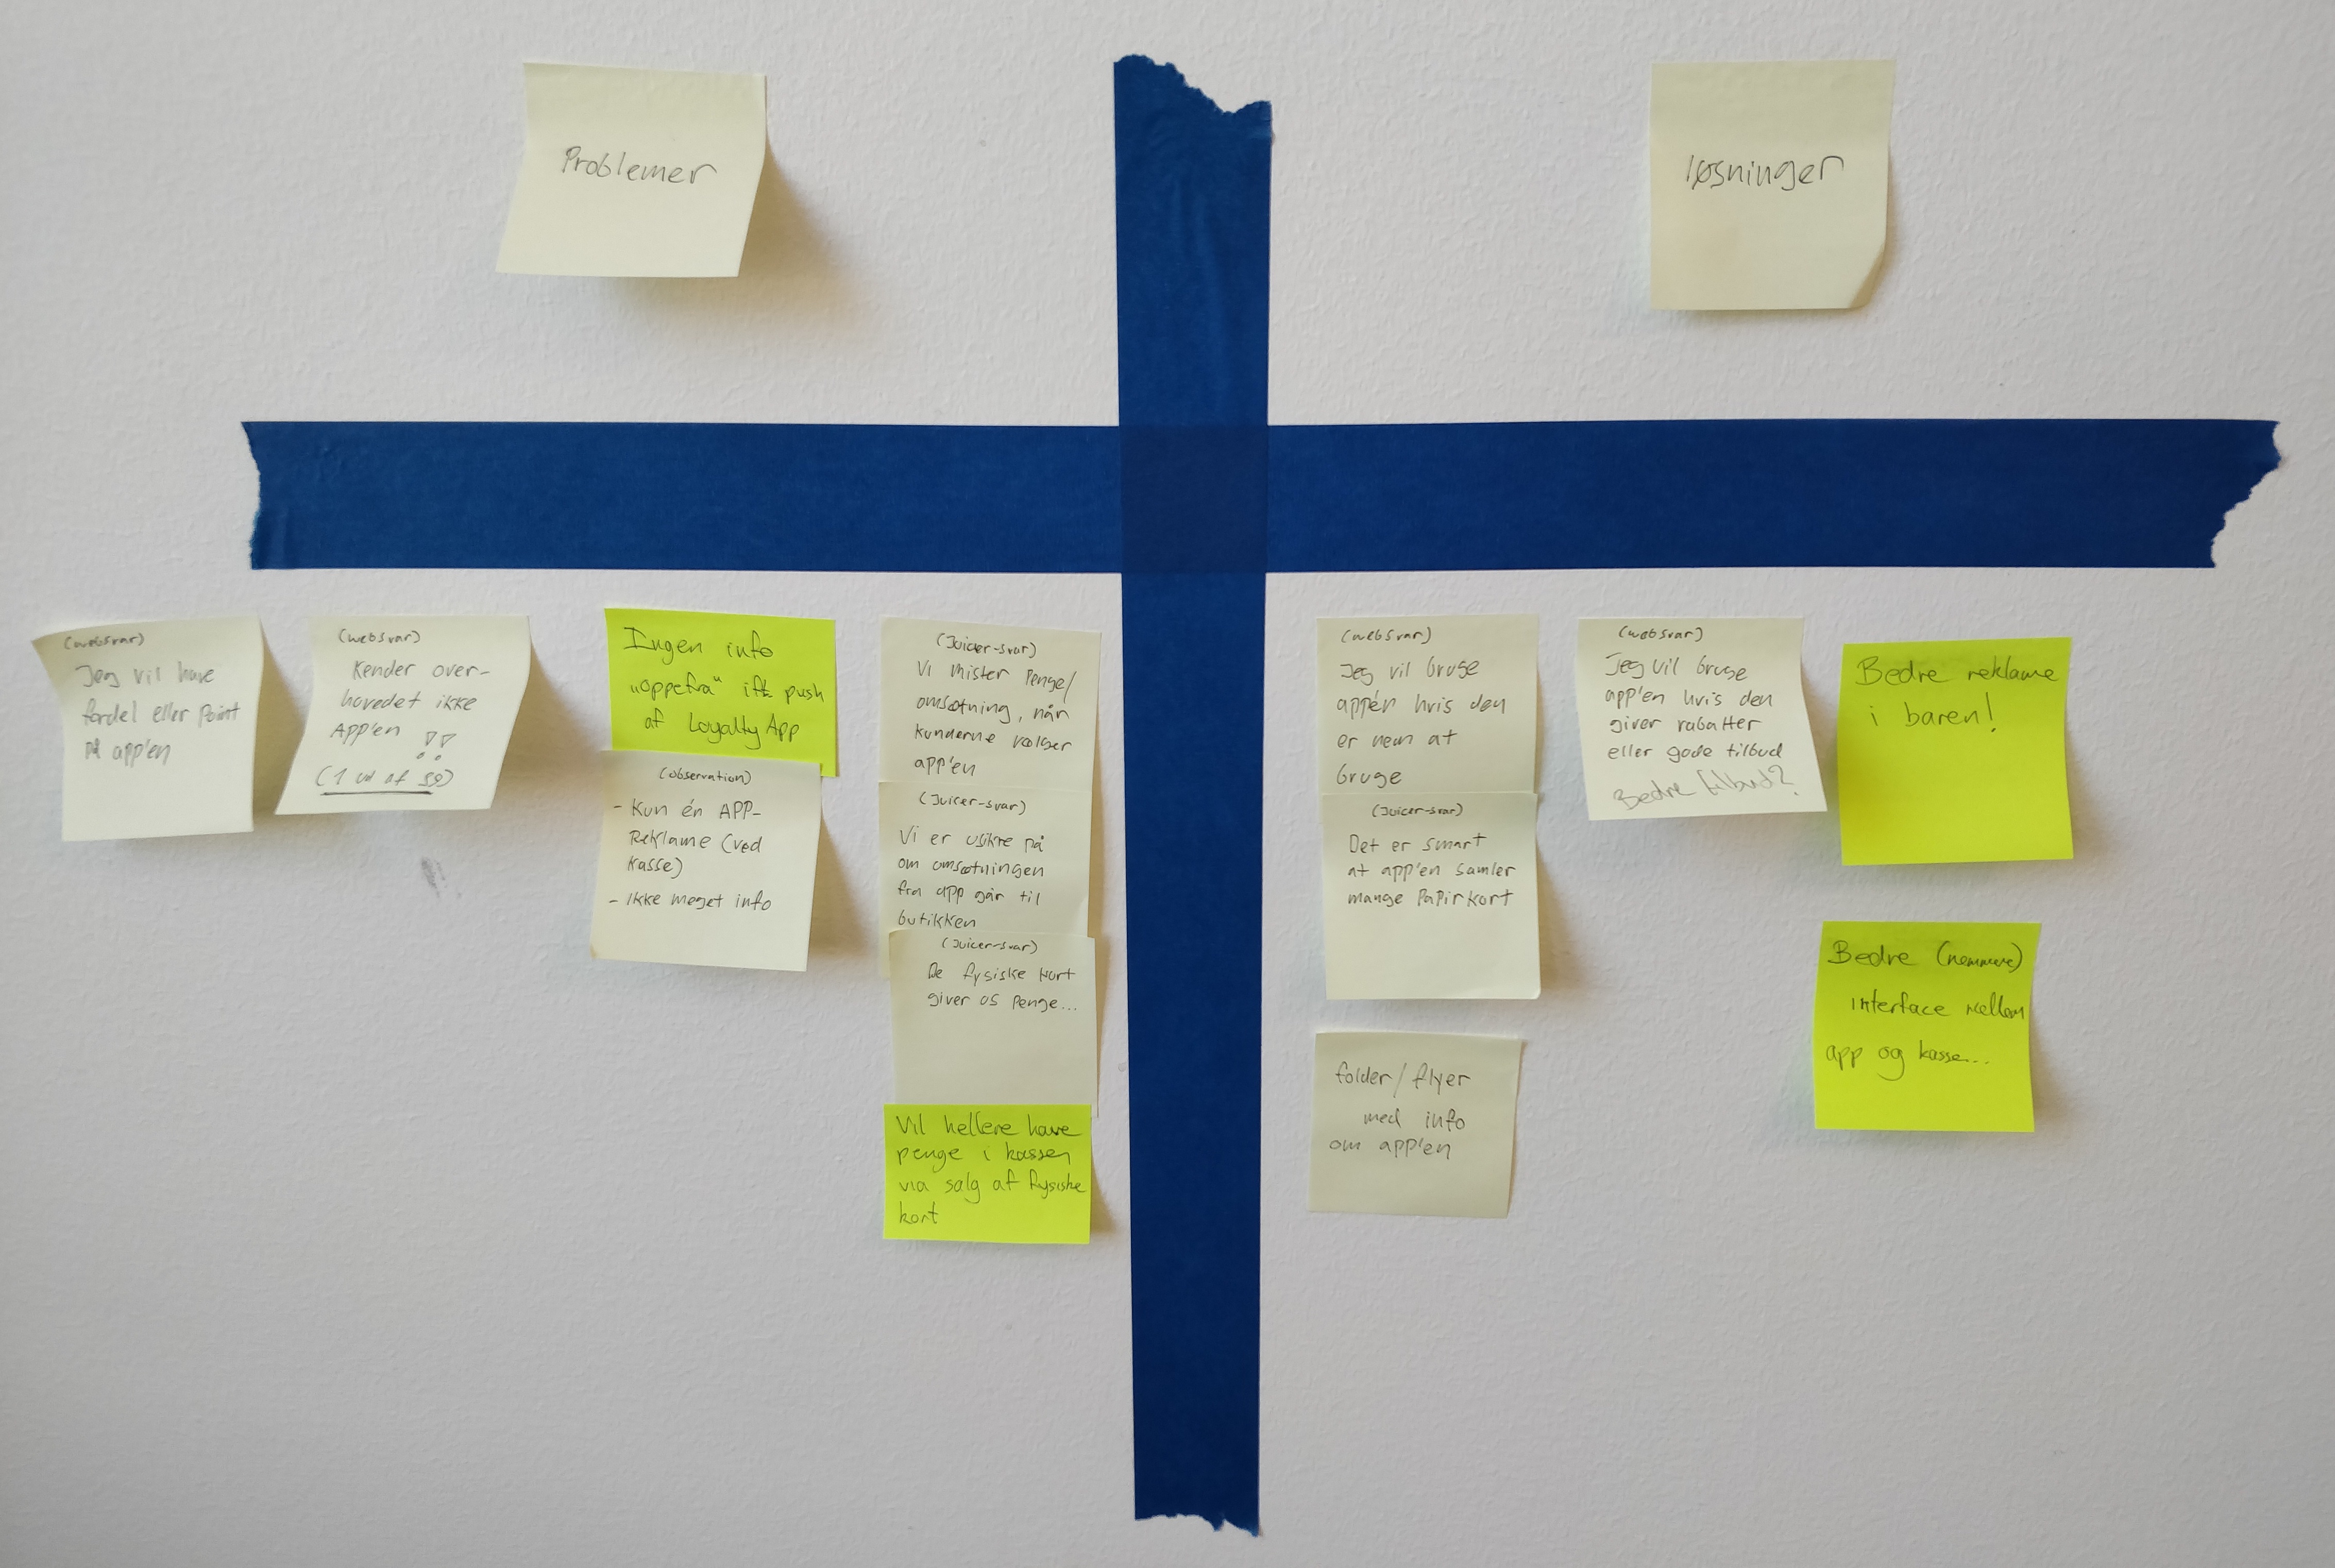 Problemer
løsninger
(websvar)
Jeg vil have
fordel eller point
på app'en
(websvar)
Kender over-
hovedet ikke
App'en !!
(1 ud af
Ingen info
"oppefra" ift. push
af Loyalty App
(observation)
- Kun én APP-
Reklame (ved
kasse)
- Ikke meget info
(Juicer-svar)
Vi mister penge/
omsætning, når
kunderne vælger
app'en
(Juicer-svar)
Vi er usikre på
om omsætningen
fra app går til
butikken
(Juicer-svar)
De fysiske kort
giver os penge...
Vil hellere have
penge i kassen
via salg af fysiske
kort
(websvar)
Jeg vil bruge
app'en hvis den
er nem at
bruge
(Juicer-svar)
Det er smart
at app'en samler
mange papirkort
folder/flyer
med info
om app'en
(websvar)
Jeg vil bruge
app'en hvis den
giver rabatter
eller gode tilbud
Bedre tilbud?
Bedre reklame
i baren!
Bedre (nemmere)
interface mellem
app og kasse...